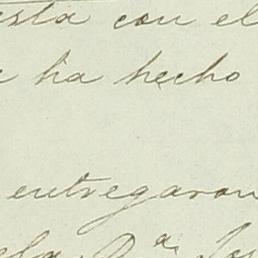 esta con el
ha hecho
entregaron
ela D.ª Jos